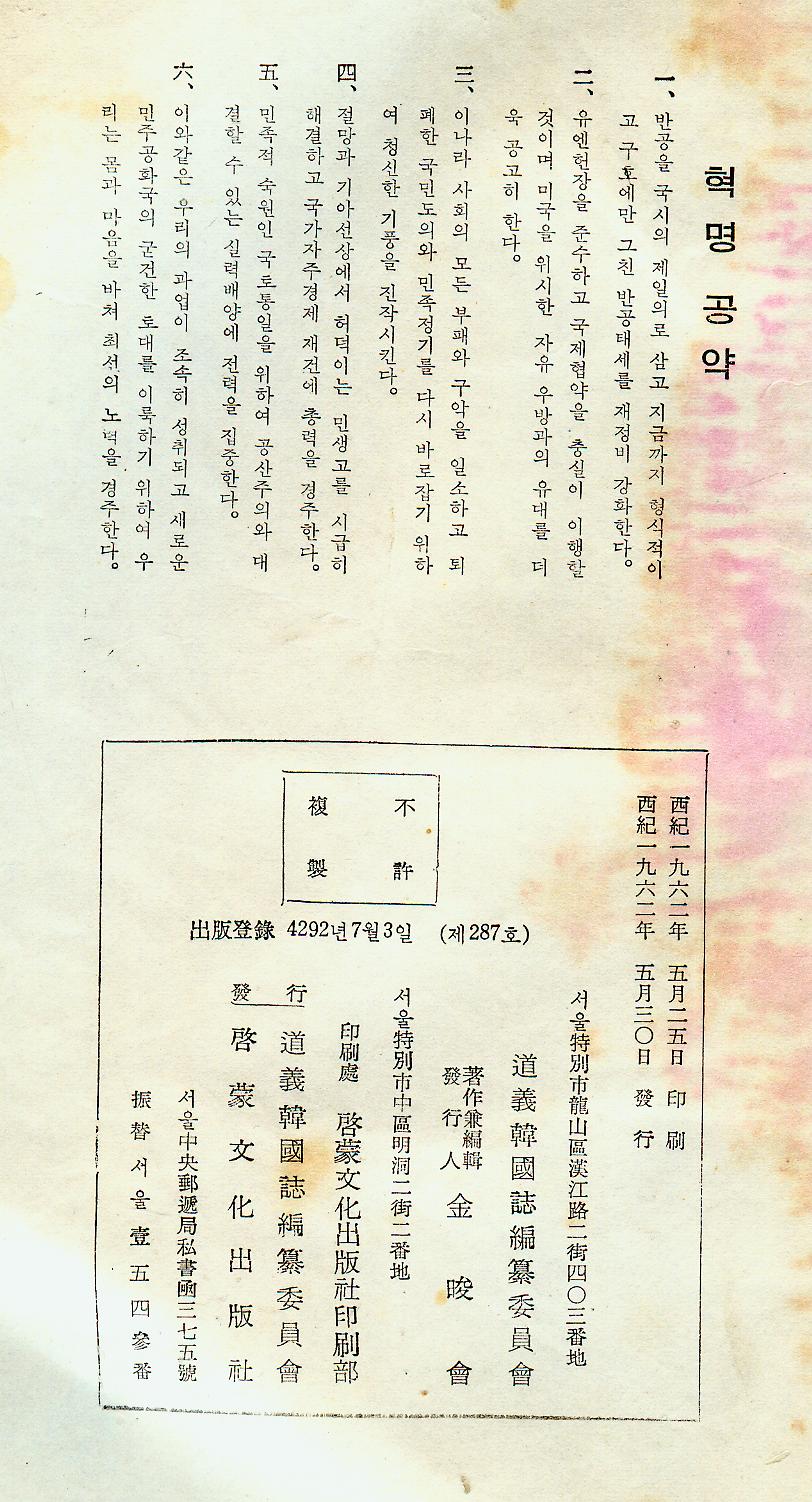 혁명공약
一、반공을 국시의 제일의로 삼고 지금까지 형식적이
고 구호에만 그친 반공태세를 재정비 강화한다。
二、유엔헌장을 준수하고 국제협약을 충실이 이행할
것이며 미국을 위시한 자유 우방과의 유대를 더
욱 공고히 한다。
三、이나라 사회의 모든 부패와 구악을 일소하고 퇴
폐한 국민도의와 민족정기를 다시 바로잡기 위하
여 청신한 기풍을 진작시킨다。
四、절망과 기아선상에서 허덕이는 민생고를 시급히
해결하고 국가자주경제 재건에 총력을 경주한다。
五、민족적 숙원인 국토통일을 위하여 공산주의와 대
결할 수 있는 실력배양에 전력을 집중한다。
六、이와같은 우리의 과업이 조속히 성취되고 새로운
민주공화국의 굳건한 토대를 이룩하기 위하여 우
리는 몸과 마음을 바쳐 최선의 노력을 경주한다。
西紀一九六二年 五月二五日 印刷
西紀一九六二年 五月三〇日 發行
不許
複製
出版登錄 4292년7월3일 (제287호)
서울特別市龍山區漢江路二街四〇三番地
道義韓國誌編纂委員會
著作兼編輯
發行人 金晙會
서울特別市中區明洞二街二番地
印刷處 啓蒙文化出版社印刷部
發行
道義韓國誌編纂委員會
啓蒙文化出版社
서울中央郵遞局私書凾三七五號
振替서울壹五四參番